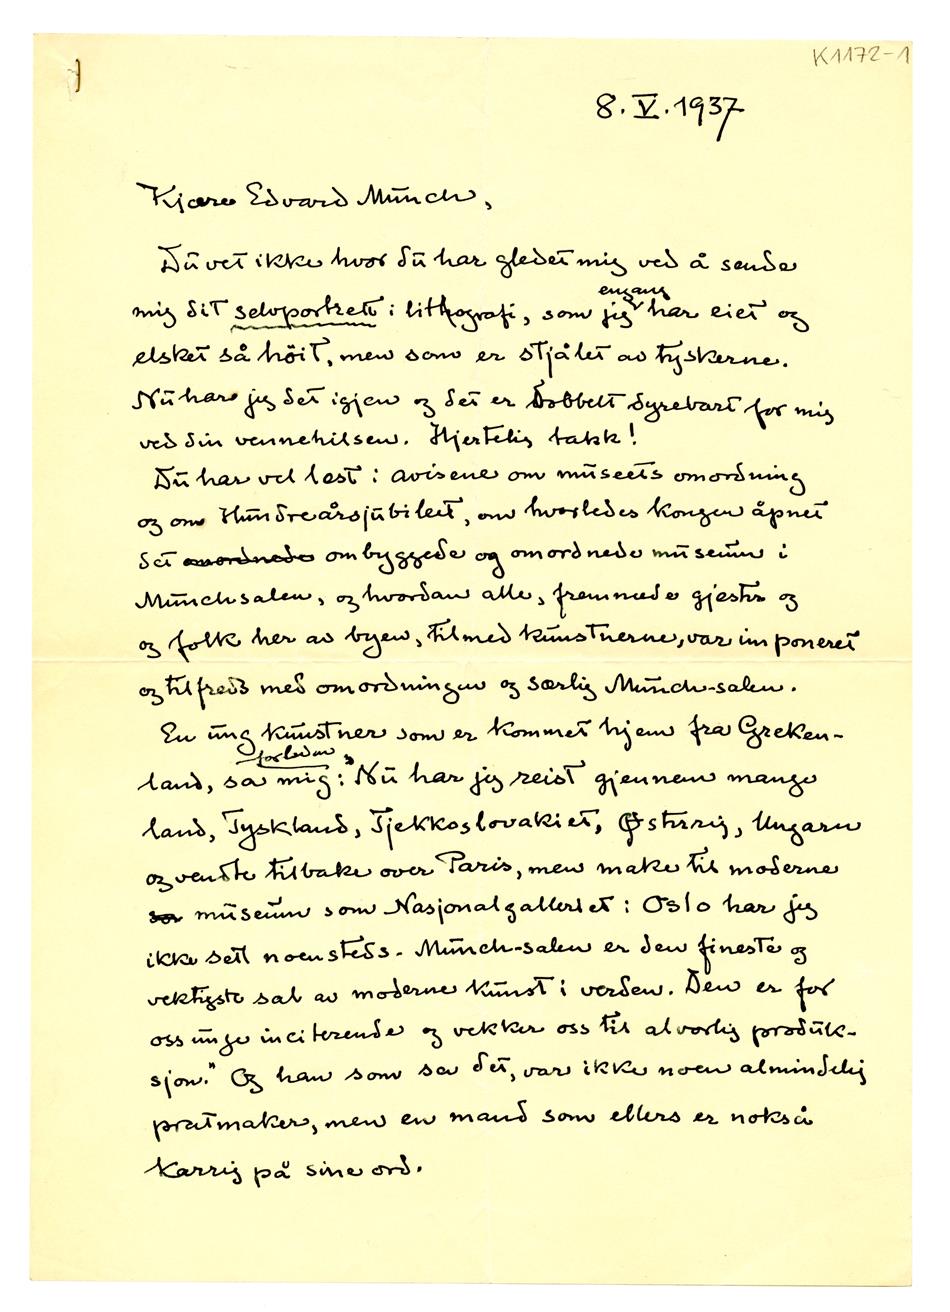 K1172-1
8. V. 1937
Kjære Edvard Munch,
Du vet ikke hvor du har gledet mig ved å sende
mig dit selvportrett i litthografi, som jeg engang har eiet og
elsket så höit, men som er stjålet av tyskerne.
Nu har jeg det igjen og det er dobbelt dyrebart for mig
ved din vennehilsen. Hjertelig takk!
Du har vel læst i avisene om museets omordning
og om Hundreårsjubileet, om hvorledes kongen åpnet
det omordnede ombyggede og omordnede museum i
Munchsalen, og hvordan alle, fremmede gjester og
og folk her av byen, tilmed kunstnerne, var imponeret
og tilfreds med omordningen og særlig Munch-salen.
En ung kunstner som er kommet hjem fra Greken-
land, sa forleden mig: "Nu har jeg reist gjennem mange
land, Tyskland, Tjekkoslovakiet, Østerrig, Ungarn
og vendte tilbake over Paris, men make til moderne
som museum som Nasjonalgalleriet i Oslo har jeg
ikke sett noensteds. Munch-salen er den fineste og
vektigste sal av moderne kunst i verden. Den er for
oss unge inciterende og vekker oss til alvorlig produk-
sjon." Og han som sa det, var ikke noen almindelig
pratmaker, men en mand som ellers er nokså
karrig på sine ord.